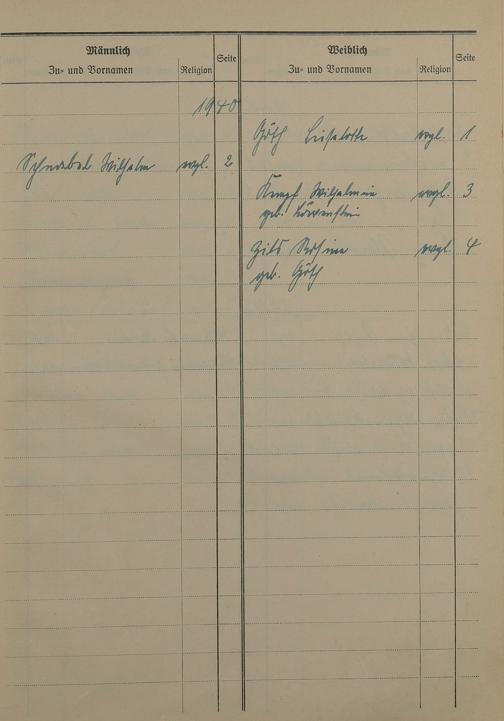 Männlich
Zu- und Vornamen Religion Seite
Weiblich
Zu- und Vornamen Religion Seite
1940
Güth Liselotte evgl. 1
Schnabel Wilhelm evgl. 2
Kempf Wilhelmine evgl. 3
geb. Löwenstein
evgl. 4
geb. Güth